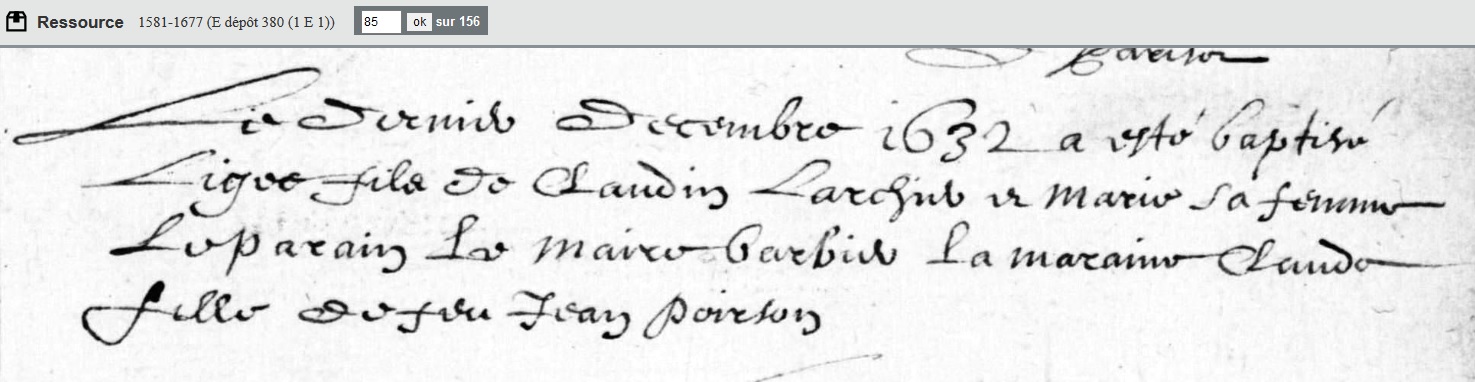 Ressource 1581-1677 (E dépôt 380 (1 E 1)) 85 ok sur 156
Le dernier Decembre 1632 a esté baptisé
fils de Claudin Larchier et Marie sa femme
Le parain Le Maire barbier La maraine Claude
fille de feu Jean poirson